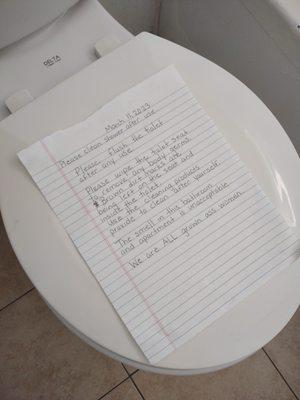 DELTA
March 11, 2023
Please clean shower after use
Please, flush the toilet
after any use.
Please wipe the toilet seat
to remove any body germs.
& Brown dirt tracks are
being left on the seat and
inside the toilet.
Use the cleaning products
provide to clean after yourself.
The smell in this bathroom
and apartment is unacceptable
We are ALL grown ass women.